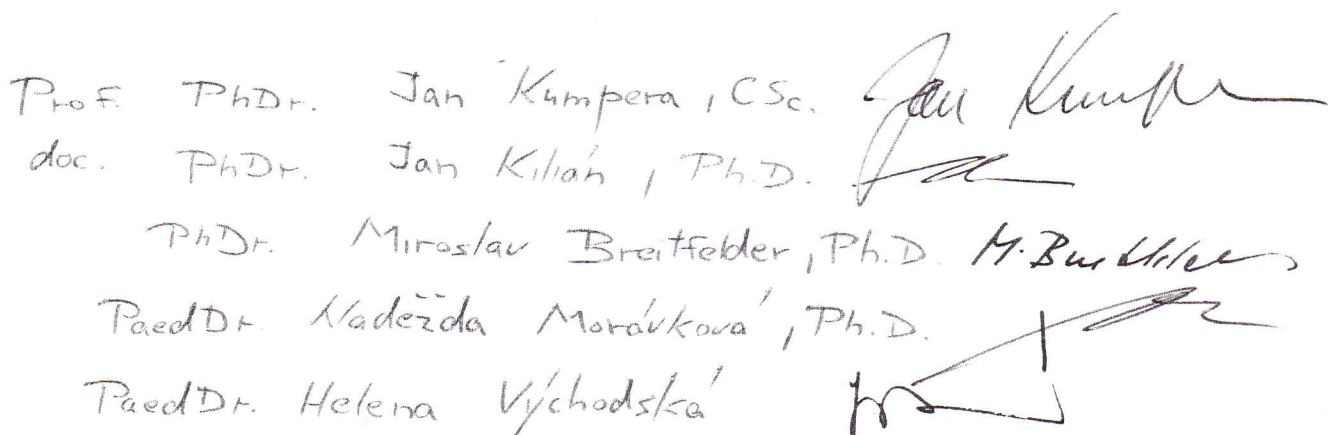 Prof. PhDr. Jan Kumpera, CSc. Jan Kumpe
doc. PhDr. Jan Kilián, Ph.D.
PhDr. Miroslav Breitfelder, Ph.D. M.
PaedDr. Naděžda Morávková, Ph.D.
PaedDr. Helena Východská